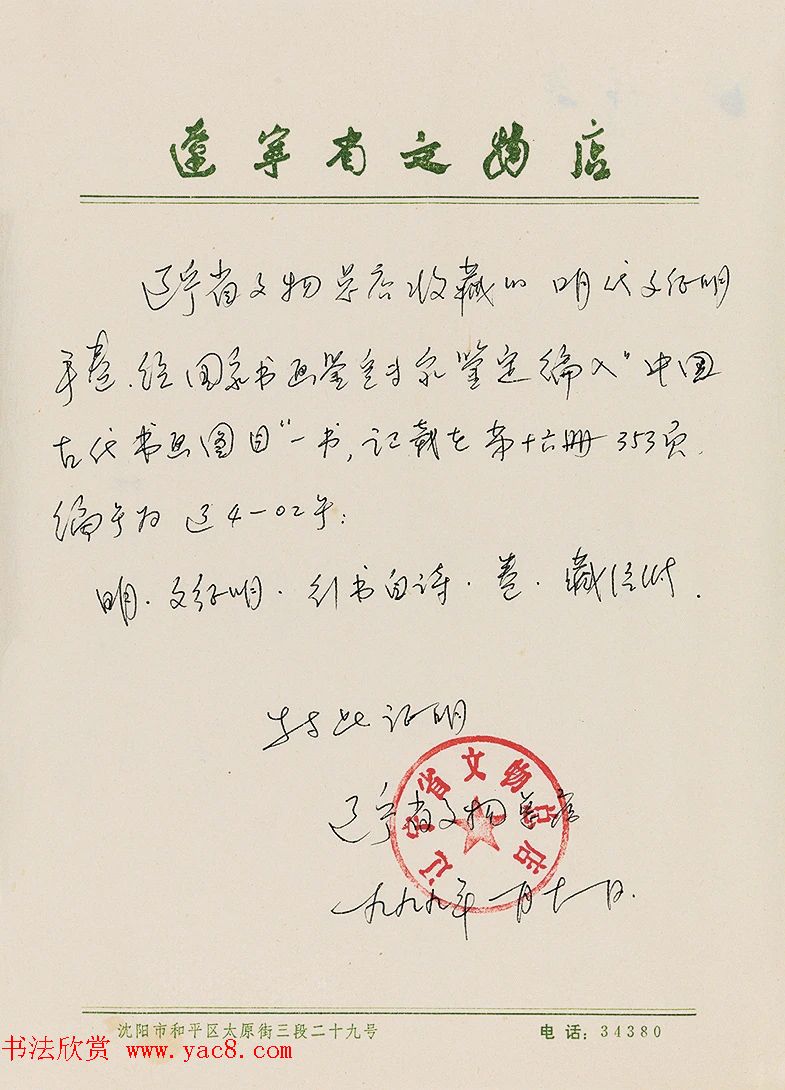 遼寧省文物店
辽宁省文物总店收藏的明代文征明
手卷.经国家书画鉴定专家鉴定编入"中国
古代书画图目"一书,记载在第十六册353页.
编号为辽4-02号:
明.文征明.行书自诗.卷.藏经纸.
特此证明
辽宁省文物总店
辽宁省文物总店
一九九九年一月十一日.
沈阳市和平区太原街三段二十九号 电话:34380
书法欣赏 www.yac8.com